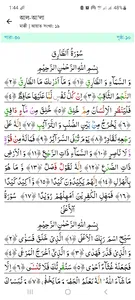 1:44
আল-আ'লা
মক্কী | আয়াত সংখ্যা: ১৯
পারা-৩০
سُوْرَةُ الطَّارِقِ
بِسْمِ اللهِ الرَّحْمٰنِ الرَّحِيْمِ
وَ السَّمَآءِ وَ الطَّارِقِ ﴿١﴾ وَ مَاۤ اَدْرٰىكَ مَا الطَّارِقُ ﴿٢﴾
النَّجْمُ الثَّاقِبُ ﴿٣﴾ اِنْ كُلُّ نَفْسٍ لَّمَّا عَلَيْهَا حَافِظٌ ﴿٤﴾
فَلْيَنْظُرِ الْاِنْسَانُ مِمَّ خُلِقَ ﴿٥﴾ خُلِقَ مِنْ مَّآءٍ دَافِقٍ ﴿٦﴾
يَّخْرُجُ مِنْۢ بَيْنِ الصُّلْبِ وَ التَّرَآئِبِ ﴿٧﴾ اِنَّهٗ عَلٰى
رَجْعِهٖ لَقَادِرٌ ﴿٨﴾ يَوْمَ تُبْلَى السَّرَآئِرُ ﴿٩﴾ فَمَا لَهٗ مِنْ قُوَّةٍ
وَّ لَا نَاصِرٍ ﴿١٠﴾ وَ السَّمَآءِ ذَاتِ الرَّجْعِ ﴿١١﴾ وَ الْاَرْضِ ذَاتِ
الصَّدْعِ ﴿١٢﴾ اِنَّهٗ لَقَوْلٌ فَصْلٌ ﴿١٣﴾ وَّ مَا هُوَ بِالْهَزْلِ ﴿١٤﴾ اِنَّهُمْ
يَكِيْدُوْنَ كَيْدًا ﴿١٥﴾ وَّ اَكِيْدُ كَيْدًا ﴿١٦﴾
فَمَهِّلِ الْكٰفِرِيْنَ اَمْهِلْهُمْ رُوَيْدًا ﴿١٧﴾ سُوْرَةُ
الْاَعْلٰى
بِسْمِ اللهِ الرَّحْمٰنِ الرَّحِيْمِ
سَبِّحِ اسْمَ رَبِّكَ الْاَعْلَى ﴿١﴾ الَّذِيْ خَلَقَ فَسَوّٰى ﴿٢﴾